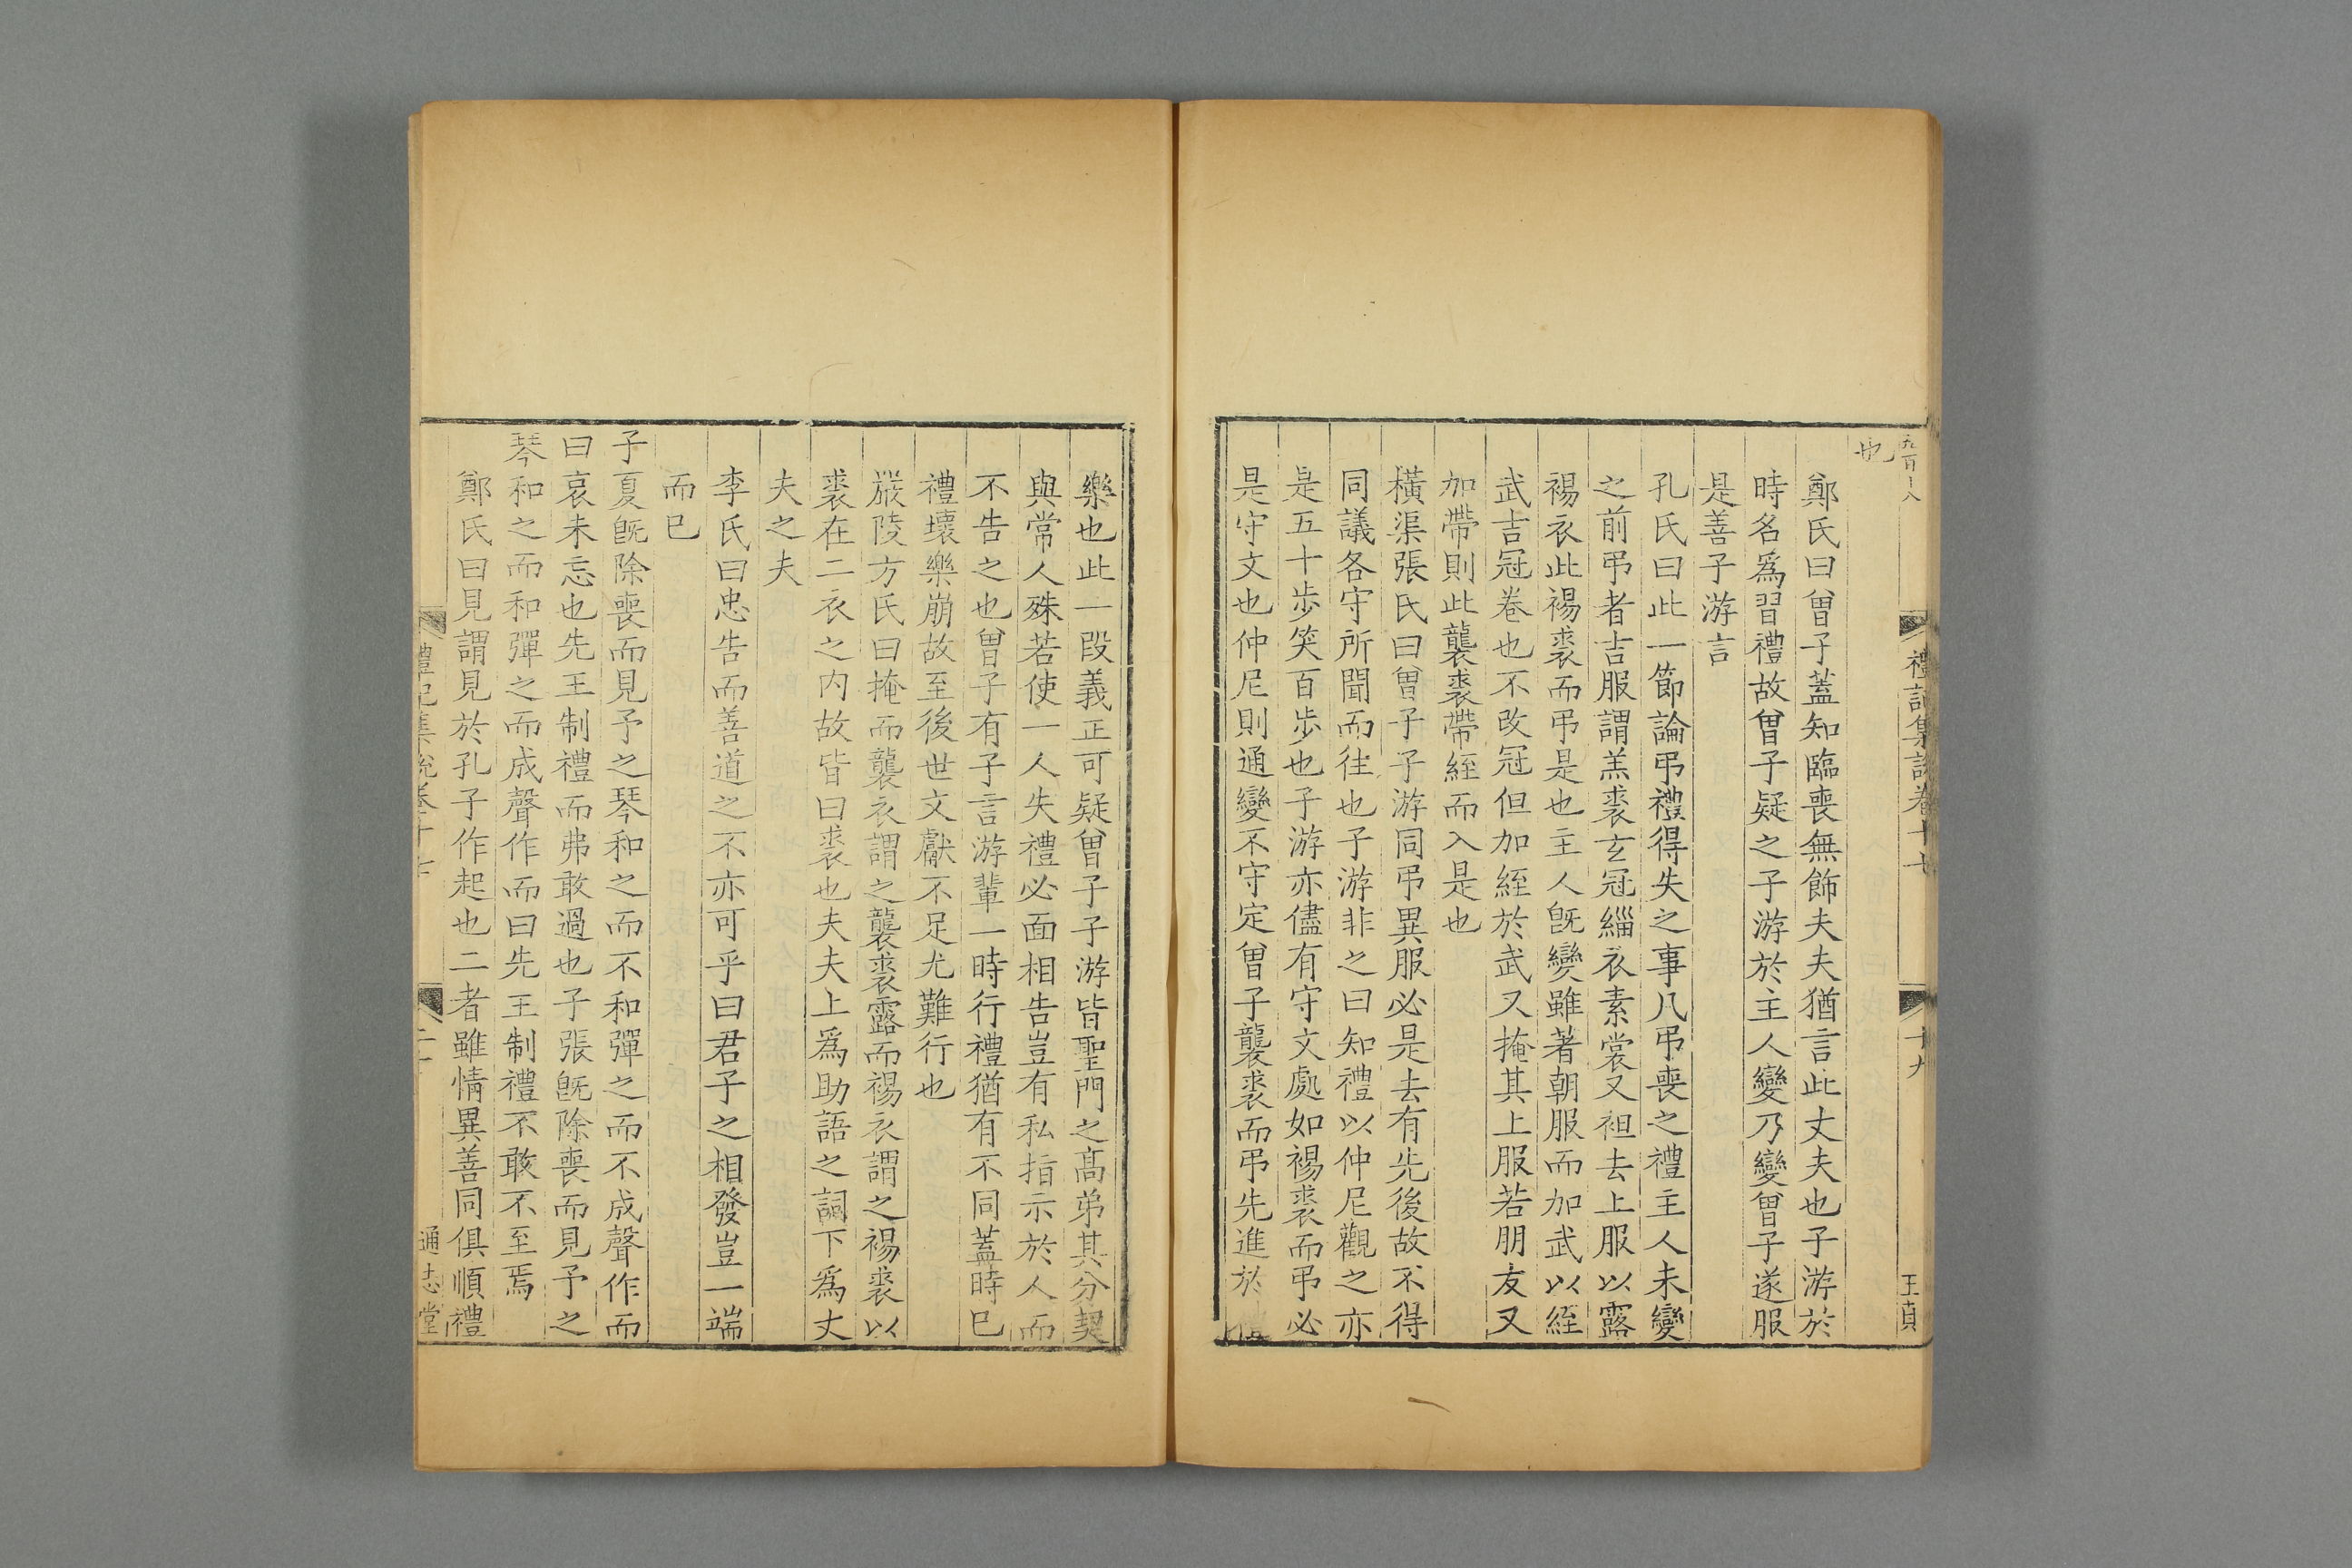 禮記集說卷十七
十九
王貞
也
鄭氏曰曾子蓋知臨喪無飾夫夫猶言此丈夫也子游於
時名爲習禮故曾子疑之子游於主人變乃變曾子遂服
是善子游言
孔氏曰此一節論弔禮得失之事凡弔喪之禮主人未變
之前弔者吉服謂羔裘玄冠緇衣素裳又袒去上服以露
裼衣此裼裘而弔是也主人旣變雖著朝服而加武以絰
武吉冠卷也不改冠但加絰於武又掩其上服若朋友又
加帶則此襲裘帶絰而入是也
橫渠張氏曰曾子子游同弔異服必是去有先後故不得
同議各守所聞而往也子游非之曰知禮以仲尼觀之亦
是五十步笑百步也子游亦儘有守文處如裼裘而弔必
是守文也仲尼則通變不守定曾子襲裘而弔先進於
樂也此一段義正可疑曾子子游皆聖門之高弟其分契
與常人殊若使一人失禮必面相告豈有私指示於人而
不告之也曾子有子言游輩一時行禮猶有不同蓋時已
禮壞樂崩故至後世文獻不足尤難行也
嚴陵方氏曰掩而襲衣謂之襲裘露而裼衣謂之裼裘以
裘在二衣之内故皆曰裘也夫夫上爲助語之詞下爲丈
夫之夫
李氏曰忠告而善道之不亦可乎曰君子之相發豈一端
而已
子夏旣除喪而見予之琴和之而不和彈之而不成聲作而
曰哀未忘也先王制禮而弗敢過也子張旣除喪而見予之
琴和之而和彈之而成聲作而曰先王制禮不敢不至焉
鄭氏曰見謂見於孔子作起也二者雖情異善同俱順禮
禮記集說卷十七
二十
通志堂